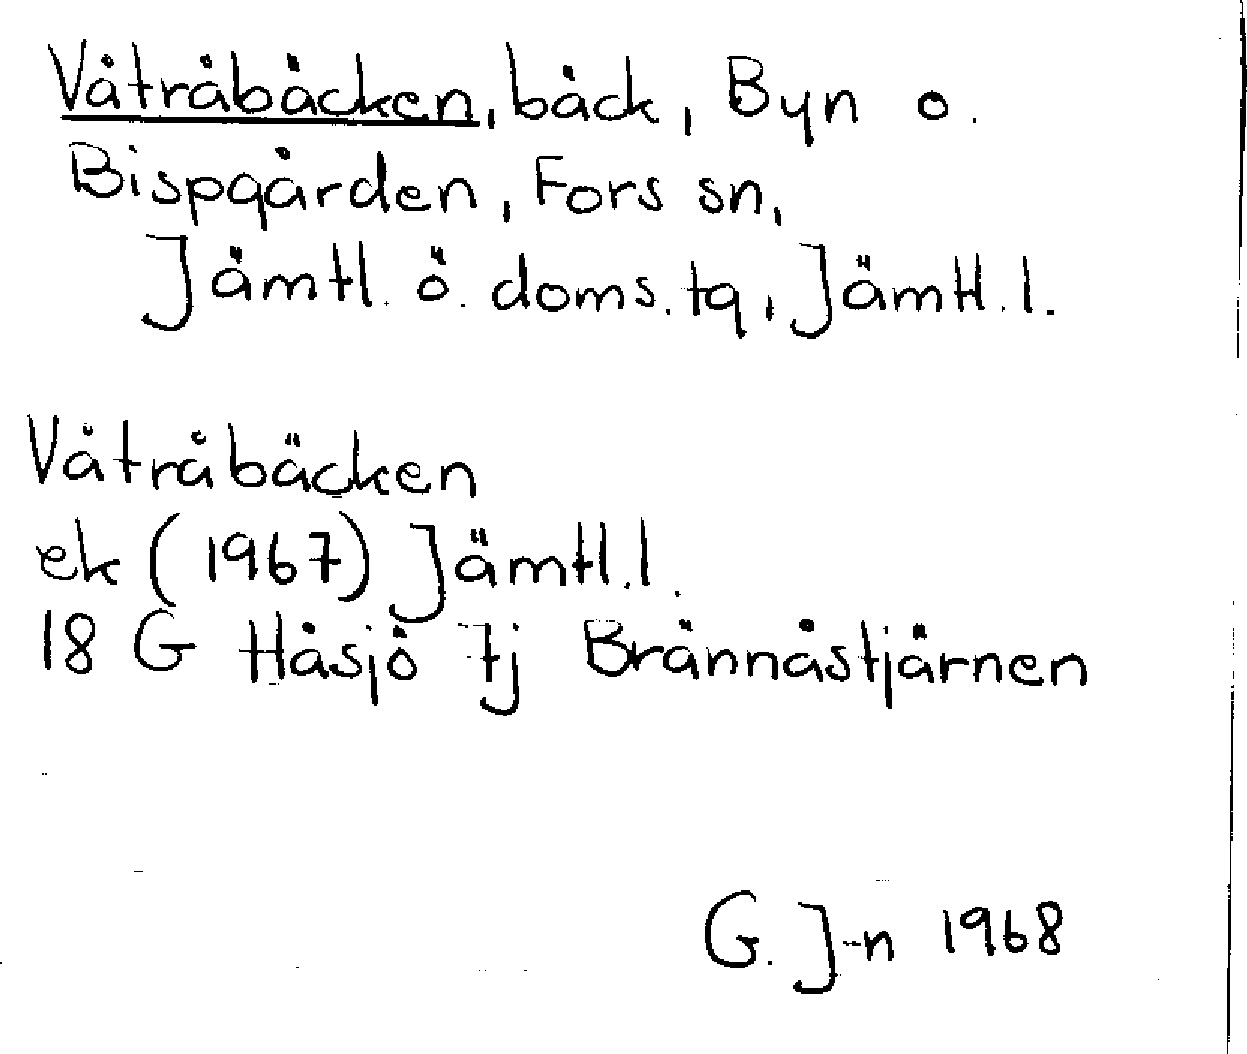 Våtråbäcken, bäck, Byn o.
Bispgården, Fors sn,
Jämtl. ö. doms. tg, Jämtl. l.
Våtråbäcken
ek (1967) Jämtl. l.
18 G Håsjö 7j Brännåstjärnen
G. J-n 1968